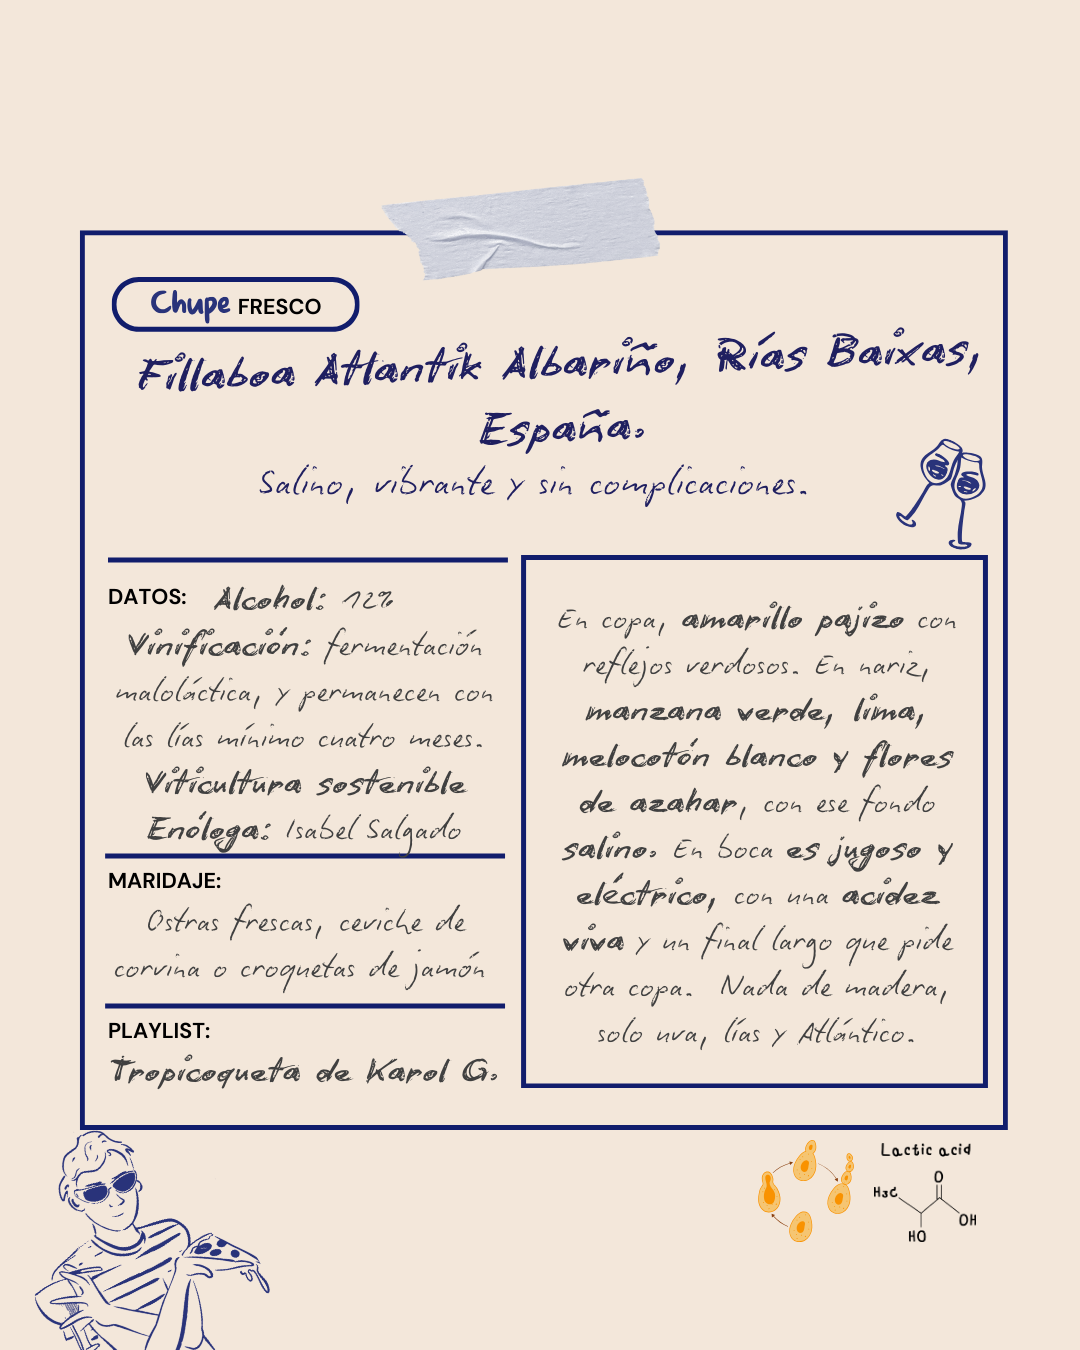 Chupe FRESCO
Fillaboa Atlantik Albariño, Rías Baixas,
España.
Salino, vibrante y sin complicaciones.
DATOS: Alcohol: 12%
Vinificación: fermentación
maloláctica, y permanecen con
las lías mínimo cuatro meses.
Viticultura sostenible
Enóloga: Isabel Salgado
MARIDAJE:
Ostras frescas, ceviche de
corvina o croquetas de jamón
PLAYLIST:
Tropicoqueta de Karol G.
En copa, amarillo pajizo con
reflejos verdosos. En nariz,
manzana verde, lima,
melocotón blanco y flores
de azahar, con ese fondo
salino. En boca es jugoso y
eléctrico, con una acidez
viva y un final largo que pide
otra copa. Nada de madera,
solo uva, lías y Atlántico.
Lactic acid
H₃C
O
OH
HO